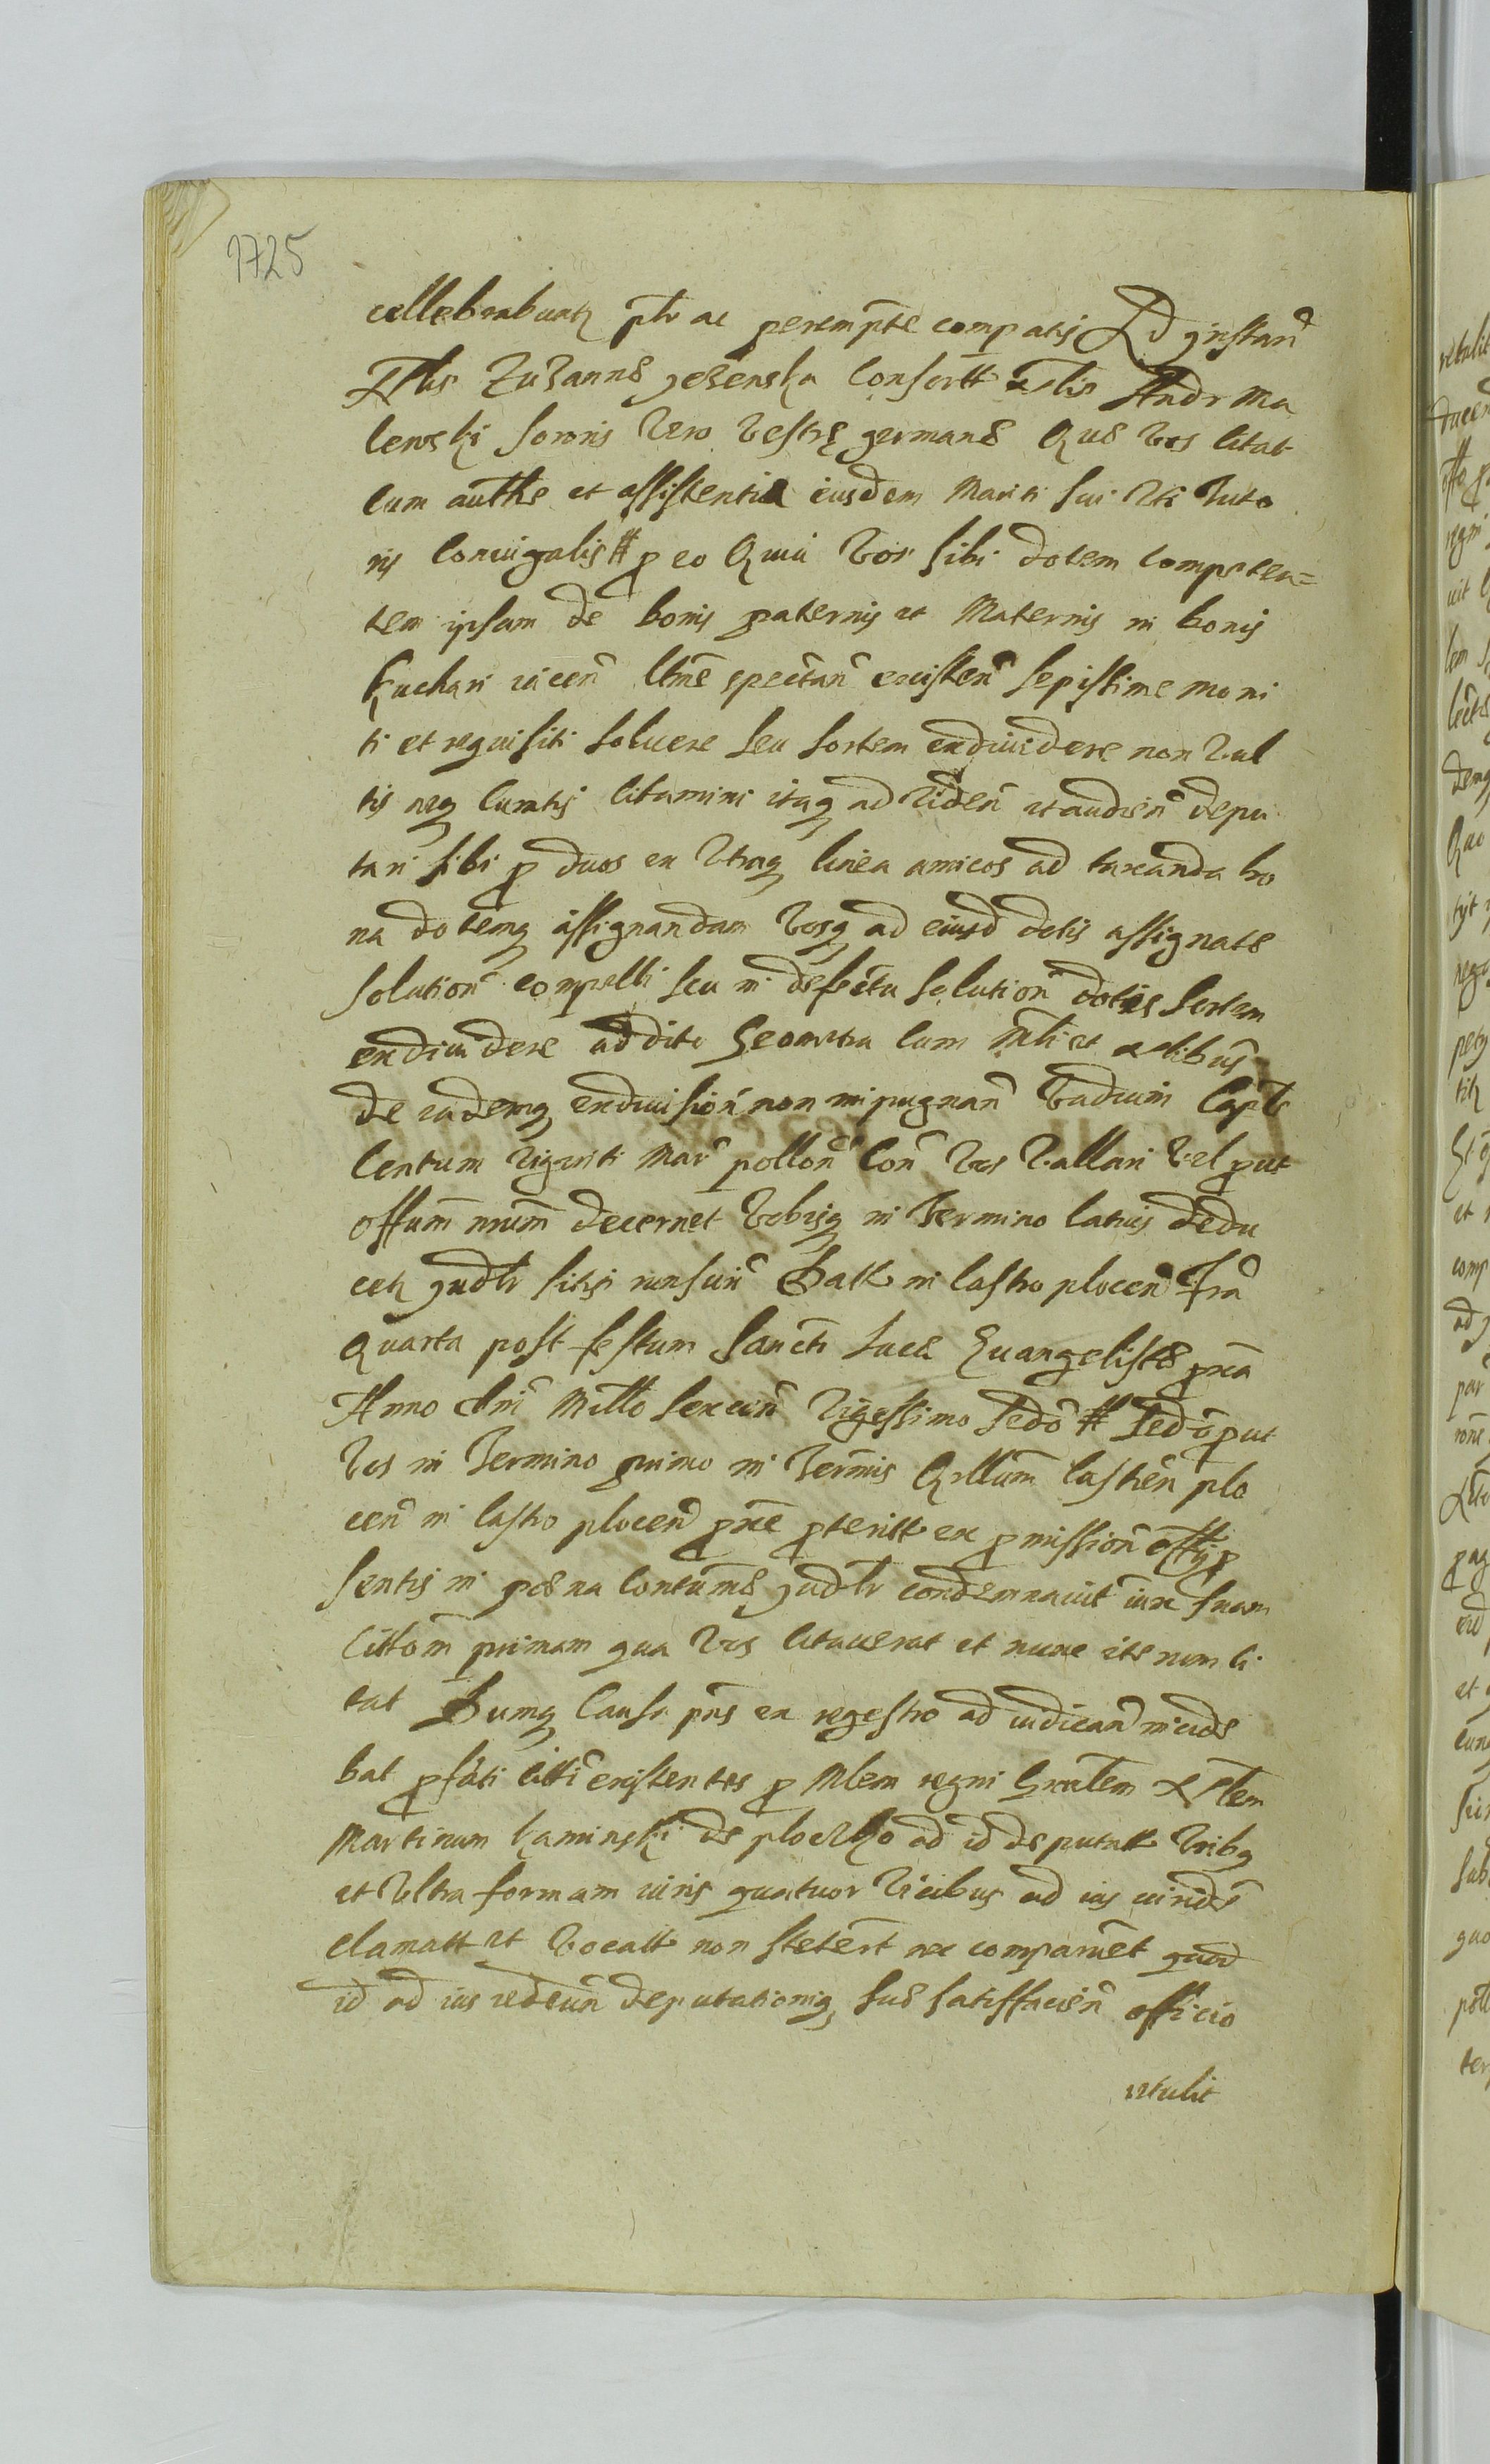 1725
cellebrabuntz pltr ac peremptẽ compatis Ad jnstanã
Nlis Zuzannæ jezẽnska Consortt Nlis Andr Ma
lewski sororis vero vestrę germanæ Quæ vos citat
cum autthe et assistentia eiusdem Mariti sui uti Tuto
ris Coniugalis p eo Quia vos sibi dotem competen=
tem ipsam de bonis paternis et Maternis in bonis
Kuchari iacen̄ Ltm̄e spectan̄ existen̄ sepissime moni
ti et requisiti soluere seu sortem exdiuidere non vul
tis neq curatis Citamini itaq ad viden̄ et audien̄ depu
tari sibi p duos ex vtraq linea amicos ad taxanda bo
na dotemq assignandam vosq ad eiusd dotis assignatæ
solution̄ compelli seu in defectu solution̄ dotis sortem
exdiuidere addito Geometra cum Mlti et actibus
de eademq exdiuision̄ non impugnan̄ vadium Captẽ
Centum viginti Mar̄ pollon̄ Con̄ vos vallari vel put
offum nrum̄ decernet vobisq in Termino latius dedu
cetz judltr sitis ronsuri Datt in Castro plocen̄ Fra
quarta post festum Sancti Lucæ Euangelistæ pxã
Anno dni Millo sexcen̄ vigessimo sedõ Sedõ put
vos in Termino primo in Termis Qrllum̄ Castren̄ plo
cen̄ in Castro plocen̄ pxẽ pteritt ex pmission̄ offij p
sentis in pæna Contum̄æ judltr condemnauit iuxẽ suam
Cittom̄ primam qua vos citauerat et nunc iterum ci
tat Dumq Causa pn̄s ex regestro ad iudican̄ incide
bat pfati citti existentes p Mlem regni Gnralem Nlem
Martinum Kaminski de ploczko ad id deputatt tribq
et vltra formam iuris quatuor vicibus ad ius viridẽ
clamatt et vocatt non stetert nec comparuẽt quod
id ad ius redeun̄ deputationiq suæ satisfacien̄ officio
retulit